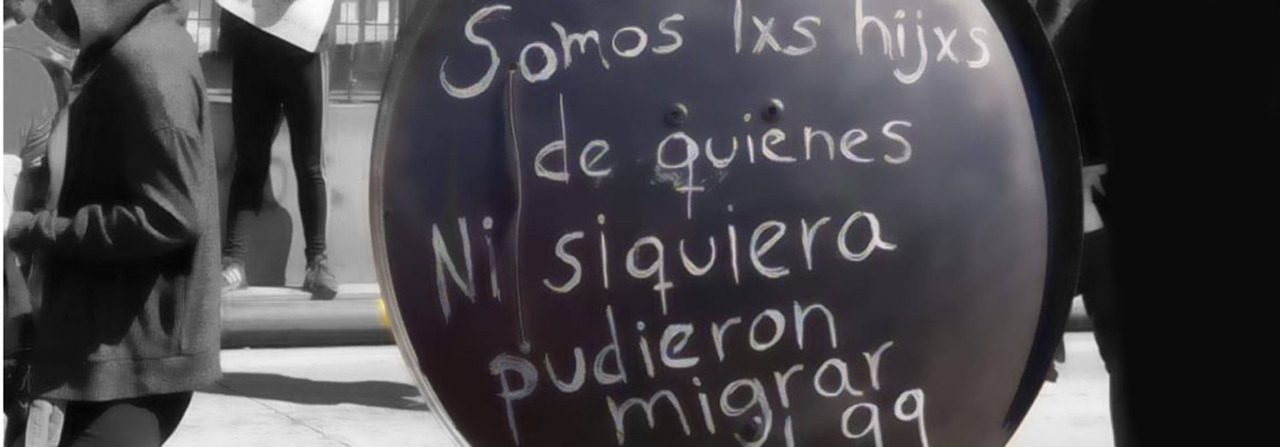 Somos lxs hijxs
de quiénes
Ni siquiera
pudieron
migrar